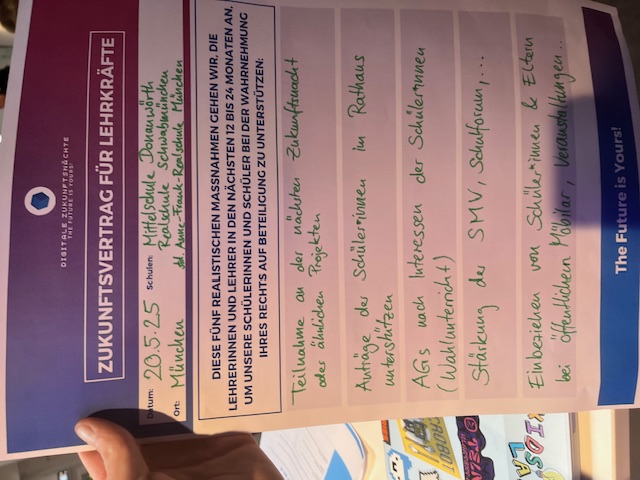 DIGITALE ZUKUNFTSNÄCHTE
THE FUTURE IS YOURS!
ZUKUNFTSVERTRAG FÜR LEHRKRÄFTE
Datum: 20.5.25
Ort: München
Schulen: Mittelschule Donauwörth
Realschule Schwabmünchen
st. Anne-Frank-Realschule München
DIESE FÜNF REALISTISCHEN MASSNAHMEN GEHEN WIR, DIE
LEHRERINNEN UND LEHRER IN DEN NÄCHSTEN 12 BIS 24 MONATEN AN,
UM UNSERE SCHÜLERINNEN UND SCHÜLER BEI DER WAHRNEHMUNG
IHRES RECHTS AUF BETEILIGUNG ZU UNTERSTÜTZEN:
Teilnahme an der nächsten Zukunftsnacht
oder ähnlichen Projekten
Anträge der Schüler*innen im Rathaus
unterstützen
AGs nach Interessen der Schüler*innen
(Wahlunterricht)
Stärkung der SMV, Schulforum, ...
Einbeziehen von Schüler*innen & Eltern
bei öffentlichem Mobiliar, Veranstaltungen...
The Future is Yours!